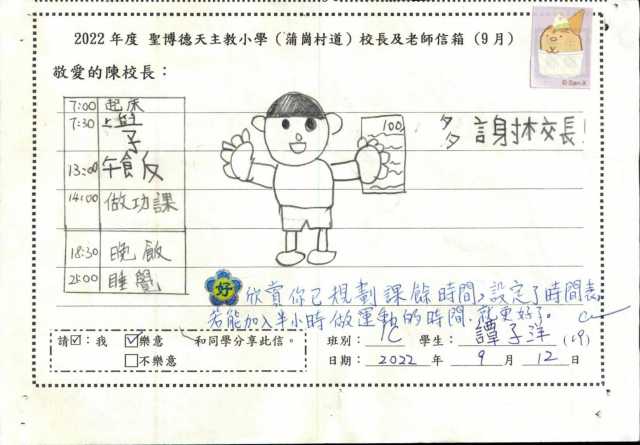 2022 年度 聖博德天主教小學（蒲崗村道）校長及老師信箱（9 月）
敬愛的陳校長：
7:00 起床
7:30 上學
13:00 午飯
14:00 做功課
18:30 晚飯
21:00 睡覺
100
多多 謝林校長!
© San-X
好 欣賞你已規劃課餘時間,設定了時間表
若能加入半小時做運動的時間.就更好了。
請☑：我 ☑樂意 和同學分享此信。
□不樂意
班別： 1C 學生： 譚子洋 (19)
日期： 2022 年 9 月 12 日